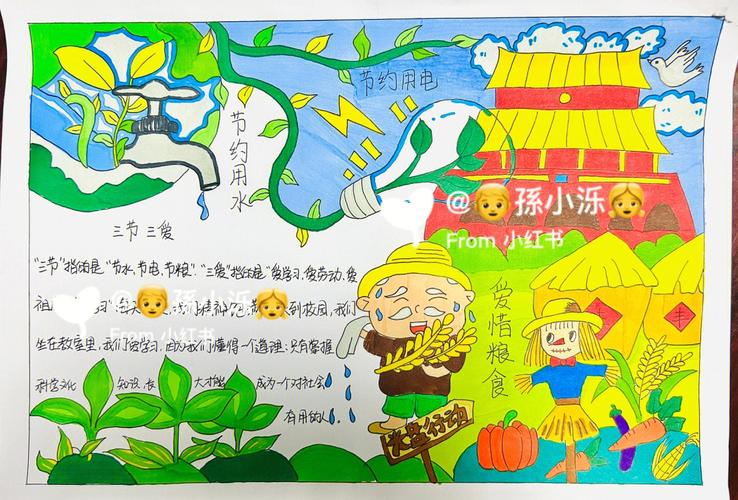 节约用电
节约用水
@孫小泺
From 小红书
三节三爱
"三节"指的是"节水、节电、节粮"."三爱"指的是"爱学习、爱劳动、爱
祖
@孫小泺
到校园,我们
From 小红书
坐在教室里,我们爱学习,因为我们懂得一个道理:只有掌握
科学文化 知识,长 大才能 成为一个对社会
有用的人。
爱惜粮食
光盘行动
丰